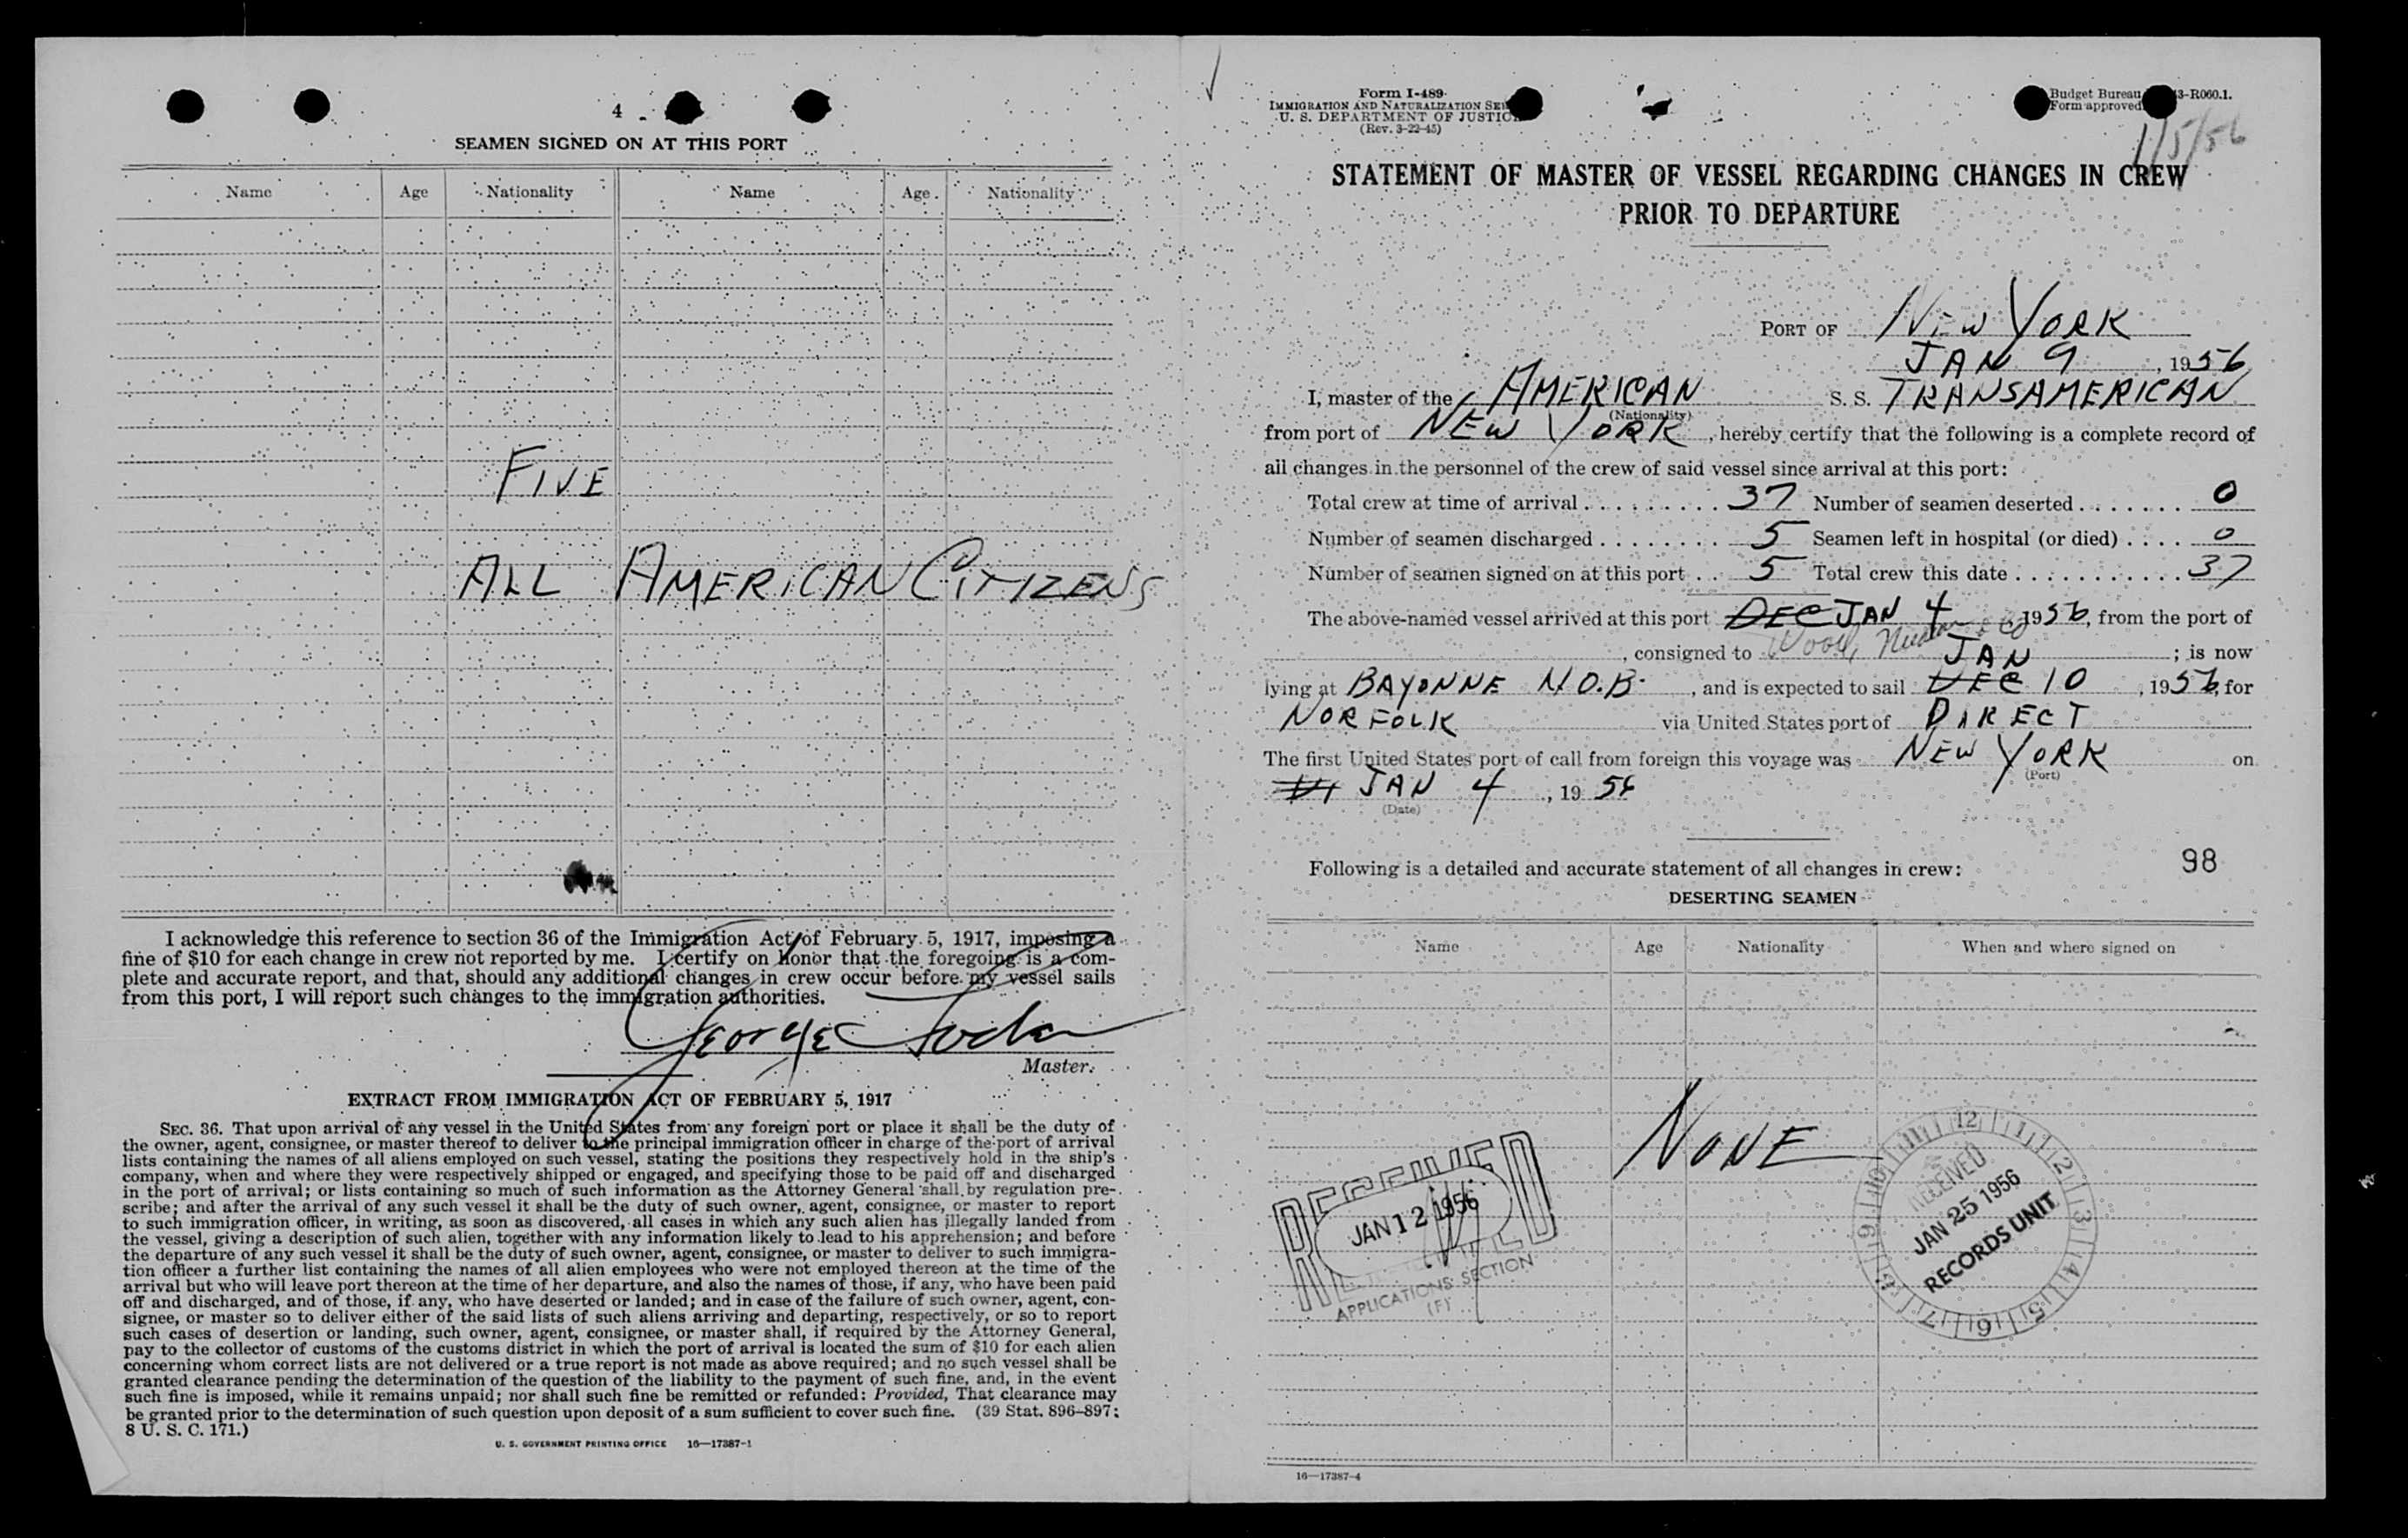 4
SEAMEN SIGNED ON AT THIS PORT
Name Age Nationality Name Age Nationality
FIVE
ALL AMERICAN CITIZENS
I acknowledge this reference to section 36 of the Immigration Act of February 5, 1917, imposing a
fine of $10 for each change in crew not reported by me. I certify on honor that the foregoing is a com-
plete and accurate report, and that, should any additional changes in crew occur before my vessel sails
from this port, I will report such changes to the immigration authorities.
George
Master.
EXTRACT FROM IMMIGRATION ACT OF FEBRUARY 5, 1917
SEC. 36. That upon arrival of any vessel in the United States from any foreign port or place it shall be the duty of
the owner, agent, consignee, or master thereof to deliver to the principal immigration officer in charge of the port of arrival
lists containing the names of all aliens employed on such vessel, stating the positions they respectively hold in the ship's
company, when and where they were respectively shipped or engaged, and specifying those to be paid off and discharged
in the port of arrival; or lists containing so much of such information as the Attorney General shall by regulation pre-
scribe; and after the arrival of any such vessel it shall be the duty of such owner, agent, consignee, or master to report
to such immigration officer, in writing, as soon as discovered, all cases in which any such alien has illegally landed from
the vessel, giving a description of such alien, together with any information likely to lead to his apprehension; and before
the departure of any such vessel it shall be the duty of such owner, agent, consignee, or master to deliver to such immigra-
tion officer a further list containing the names of all alien employees who were not employed thereon at the time of the
arrival but who will leave port thereon at the time of her departure, and also the names of those, if any, who have been paid
off and discharged, and of those, if any, who have deserted or landed; and in case of the failure of such owner, agent, con-
signee, or master so to deliver either of the said lists of such aliens arriving and departing, respectively, or so to report
such cases of desertion or landing, such owner, agent, consignee, or master shall, if required by the Attorney General,
pay to the collector of customs of the customs district in which the port of arrival is located the sum of $10 for each alien
concerning whom correct lists are not delivered or a true report is not made as above required; and no such vessel shall be
granted clearance pending the determination of the question of the liability to the payment of such fine, and, in the event
such fine is imposed, while it remains unpaid; nor shall such fine be remitted or refunded: Provided, That clearance may
be granted prior to the determination of such question upon deposit of a sum sufficient to cover such fine. (39 Stat. 896-897;
8 U. S. C. 171.)
U. S. GOVERNMENT PRINTING OFFICE 16—17387-1
Form I-489
IMMIGRATION AND NATURALIZATION
U. S. DEPARTMENT OF JUSTIC
(Rev. 3-22-45)
Budget Bureau 3-R060.1.
Form approved
1/5/56
STATEMENT OF MASTER OF VESSEL REGARDING CHANGES IN CREW
PRIOR TO DEPARTURE
PORT OF NEW YORK
JAN 9, 1956
I, master of the AMERICAN S. S. TRANSAMERICAN
(Nationality)
from port of NEW YORK, hereby certify that the following is a complete record of
all changes in the personnel of the crew of said vessel since arrival at this port:
Total crew at time of arrival . . . . . . . . . 37 Number of seamen deserted . . . . . . . 0
Number of seamen discharged . . . . . . . . 5 Seamen left in hospital (or died) . . . . 0
Number of seamen signed on at this port . . 5 Total crew this date . . . . . . . . . . . 37
The above-named vessel arrived at this port DEC JAN 4 1956, from the port of
, consigned to JAN ; is now
lying at BAYONNE N.O.B., and is expected to sail DEC 10, 1956, for
NORFOLK via United States port of DIRECT
The first United States port of call from foreign this voyage was NEW YORK on
(Port)
JAN 4, 1956
(Date)
Following is a detailed and accurate statement of all changes in crew:
98
DESERTING SEAMEN
Name Age Nationality When and where signed on
NONE
RECEIVED
JAN 12 1956
APPLICATIONS SECTION
(F)
12 1 2 3 4 5 6 7 8 9 10 11
RECEIVED
JAN 25 1956
RECORDS UNIT
16—17387-4